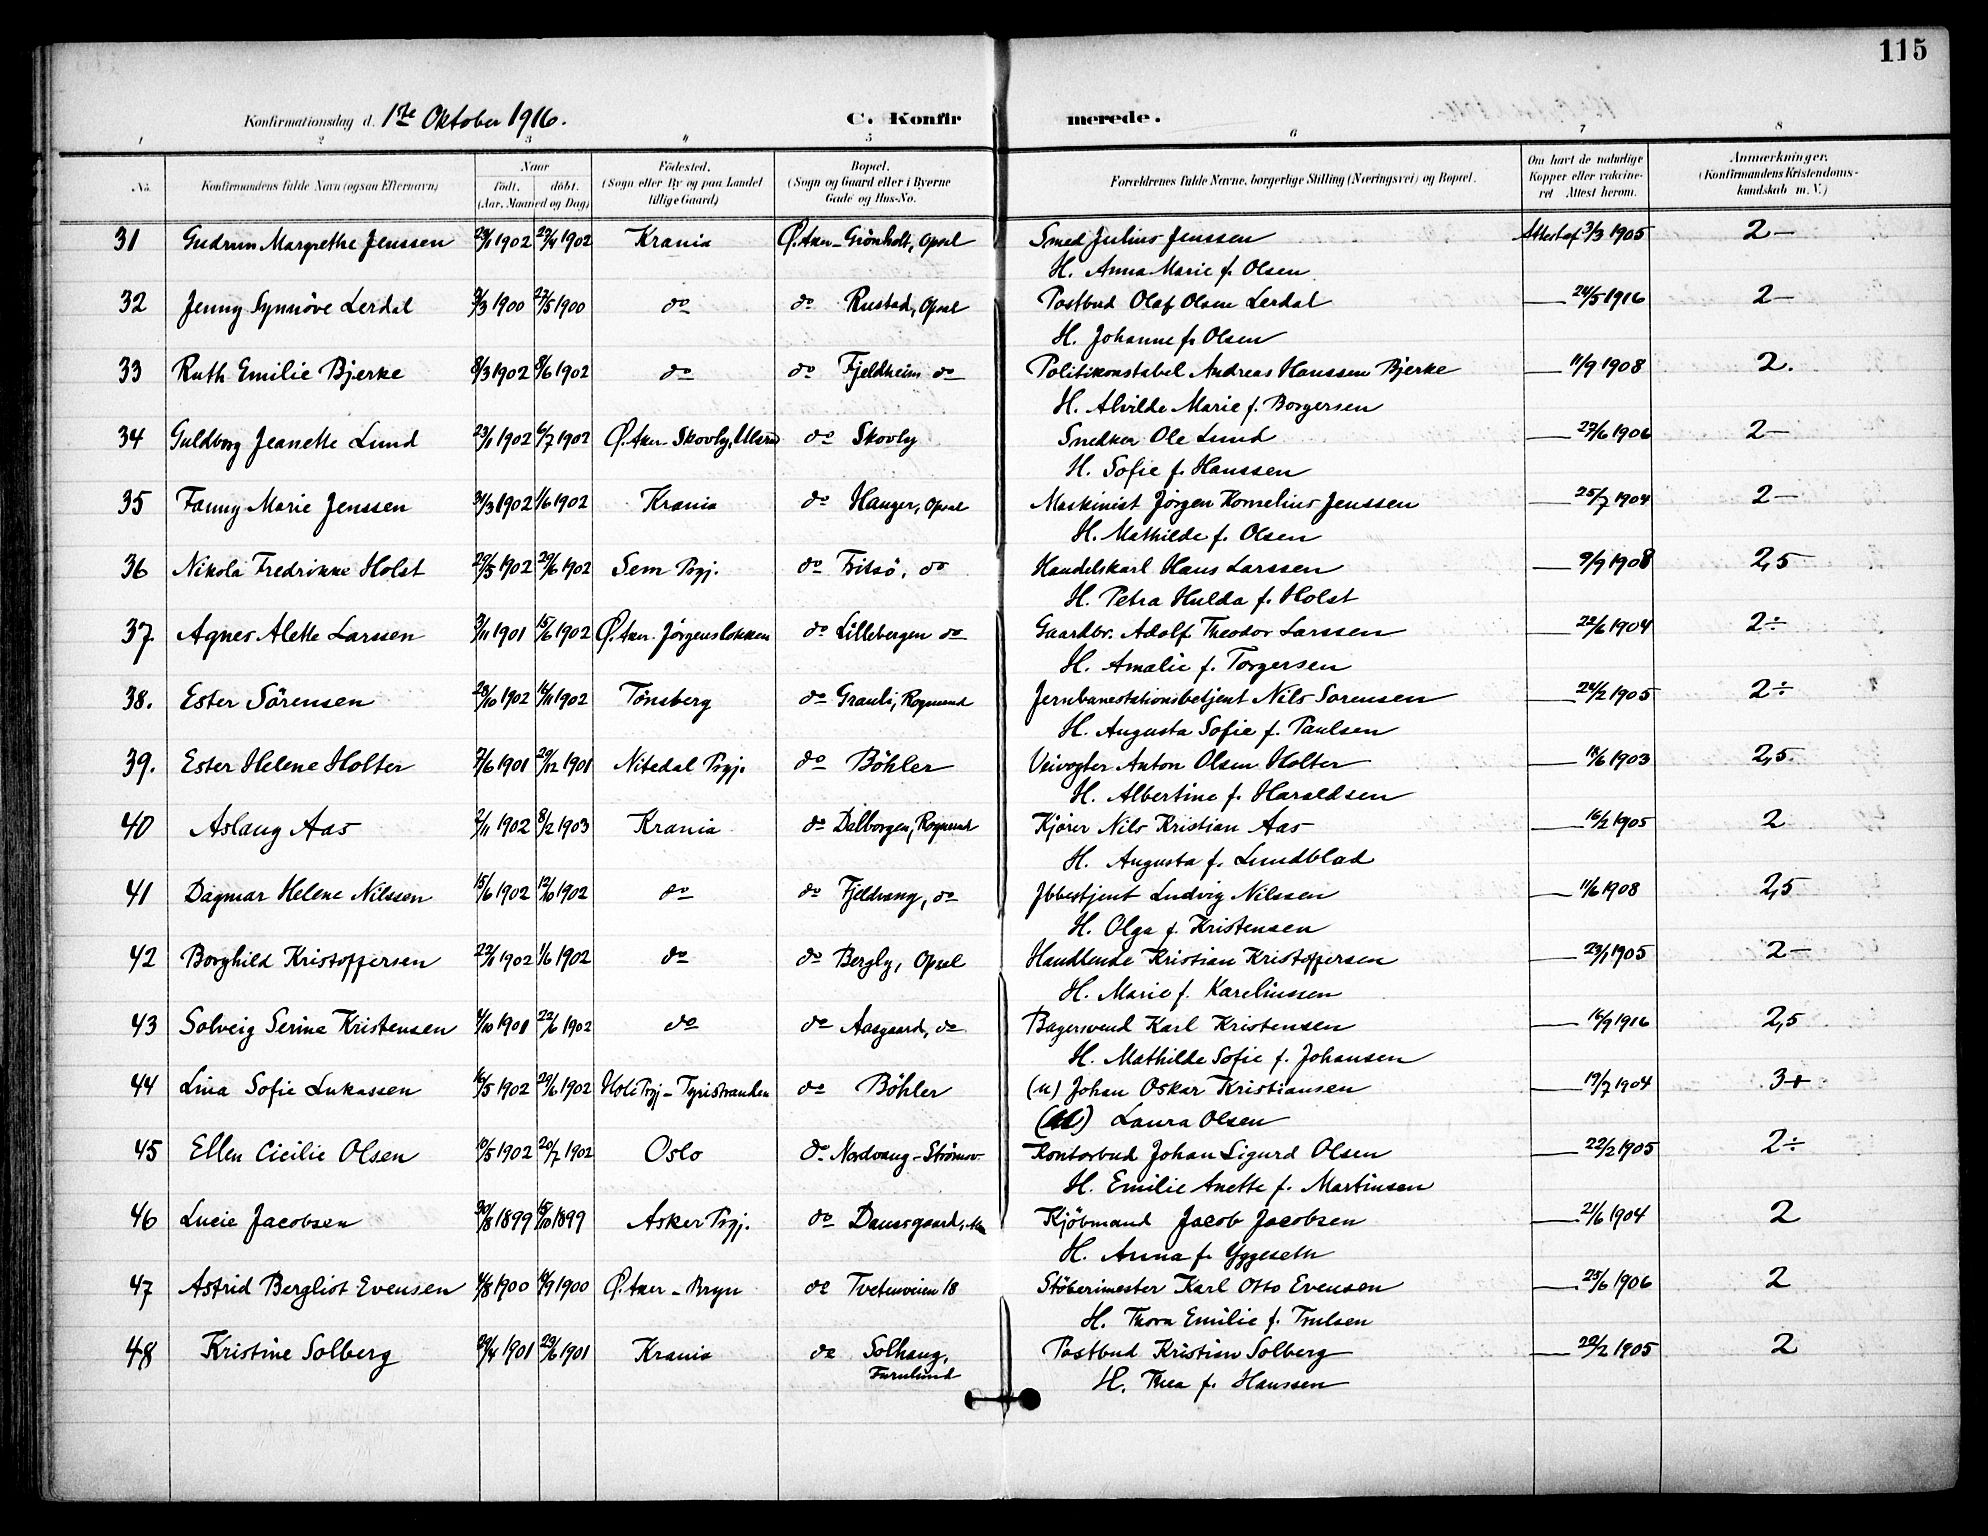 115
Konfirmationsdag d. 1ste Oktober 1916. C. Konfirmerede.
1 2 3 4 5 6 7 8
No. Konfirmandens fulde Navn (ogsaa Efternavn) Naar født. døbt. (Aar, Maaned og Dag) Fødested. (Sogn eller By og paa Landet tillige Gaard) Bopæl. (Sogn og Gaard eller i Byerne Gade og Hus-No. Forældrenes fulde Navne, borgerlige Stilling (Næringsvei) og Bopæl. Om havt de naturlige Kopper eller vakcineret Attest herom. Anmærkninger. (Konfirmandens Kristendomskundskab m. V.)
31 Gudrun Margrethe Jenssen 1902 1902 Krania Ø. Aker - Grönholt, Opsal Smed Julius Jenssen Attest af 3/3 1905 2-
H. Anna Marie f. Olsen
32 Jenny Synnöve Lerdal 1900 27/5 1900 do do Rustad, Opsal Postbud Olaf Olsen Lerdal — 24/5 1916 2-
H. Johanne f. Olsen
33 Ruth Emilie Bjerke 8/3 1902 8/6 1902 do do Fjeldheim do Politikonstabel Andreas Hanssen Bjerke — 11/9 1908 2.
H. Alvilde Marie f. Borgersen
34 Guldborg Jeanette Lund 23/1 1902 6/7 1902 Ø. Aker - Skovly, Ulsrud do Skovly Snedker Ole Lund — 27/6 1906 2-
H. Sofie f. Hanssen
35 Fanny Marie Jenssen 31/3 1902 1/6 1902 Krania do Hauger, Opsal Maskinist Jörgen Kornelius Jenssen — 25/7 1904 2-
H. Mathilde f. Olsen
36 Nikola Fredrikke Holst 29/5 1902 29/6 1902 Sem Prgj. do Fritsö, do Handelskarl Hans Larssen — 9/9 1908 2,5
H. Petra Hulda f. Holst
37. Agnes Alette Larssen 3/11 1901 15/6 1902 Ø. Aker. Jörgensløkken do Lillebergen do Gaardbr. Adolf Theodor Larssen — 22/6 1904 2÷
H. Amalie f. Torgersen
38. Ester Sörensen 1902 1902 Tönsberg do Granli, Rognerud Jernbanestationsbetjent Nils Sorensen — 24/2 1905 2÷
H. Augusta Sofie f. Paulsen
39. Ester Helene Holter 7/6 1901 29/12 1901 Nitedal Prgj. do Böhler Veivogter Anton Olsen Holter — 18/6 1903 2,5.
H. Albertine f. Haraldsen
40 Aslaug Aas 2/11 1902 8/2 1903 Krania do Dalborgen, Rognerud Kjörer Nils Kristian Aas — 16/2 1905 2
H. Augusta f. Lundblad
41 Dagmar Helene Nilssen 15/6 1902 12/10 1902 do do Fjeldvang, do Jbbetjent Ludvig Nilssen — 11/6 1908 2,5
H. Olga f. Kristensen
42 Borghild Kristoffersen 22/1 1902 1/6 1902 do do Bergly, Opsal Handlende Kristian Kristoffersen — 23/1 1905 2-
H. Marie f. Kareliussen
43 Solveig Serine Kristensen 4/10 1901 22/6 1902 do do Aasgaard, do Bagersvend Karl Kristensen — 16/9 1916 2,5
H. Mathilde Sofie f. Johansen
44 Lina Sofie Lukassen 16/5 1902 29/6 1902 Hole Prgj - Tyristranden do Böhler (u) Johan Oskar Kristiansen — 19/7 1904 3+
Laura Olsen
45 Ellen Cicilie Olsen 10/5 1902 20/7 1902 Oslo do Nordvang - Strömsv. Kontorbud Johan Sigurd Olsen — 22/2 1905 2÷
H. Emilie Anette f. Martinsen
46 Lucie Jacobsen 30/8 1899 15/10 1899 Asker Prgj. do Dansgaard, Kjöbmand Jacob Jacobsen — 21/6 1904 2
H. Anna f. Yggeseth
47 Astrid Bergliot Evensen 4/8 1900 1900 Ø. Aker - Bryn do Tvetenveien 18 Stöberimester Karl Otto Evensen — 25/6 1906 2
H. Thora Emilie f. Trulsen
48 Kristine Solberg 29/4 1901 29/6 1901 Krania do Solhaug, Postbud Kristian Solberg — 22/2 1905 2
Furulund
H. Thea f. Hanssen